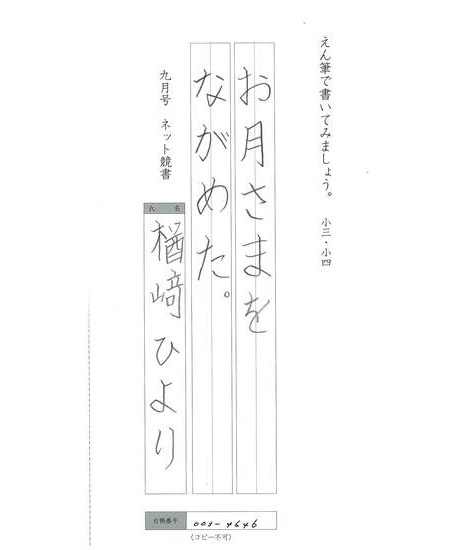 えん筆で書いてみましょう。 小三・小四
お月さまを
ながめた。
九月号 ネット競書
氏名
楢﨑ひより
台帳番号 008-4646
(コピー不可)